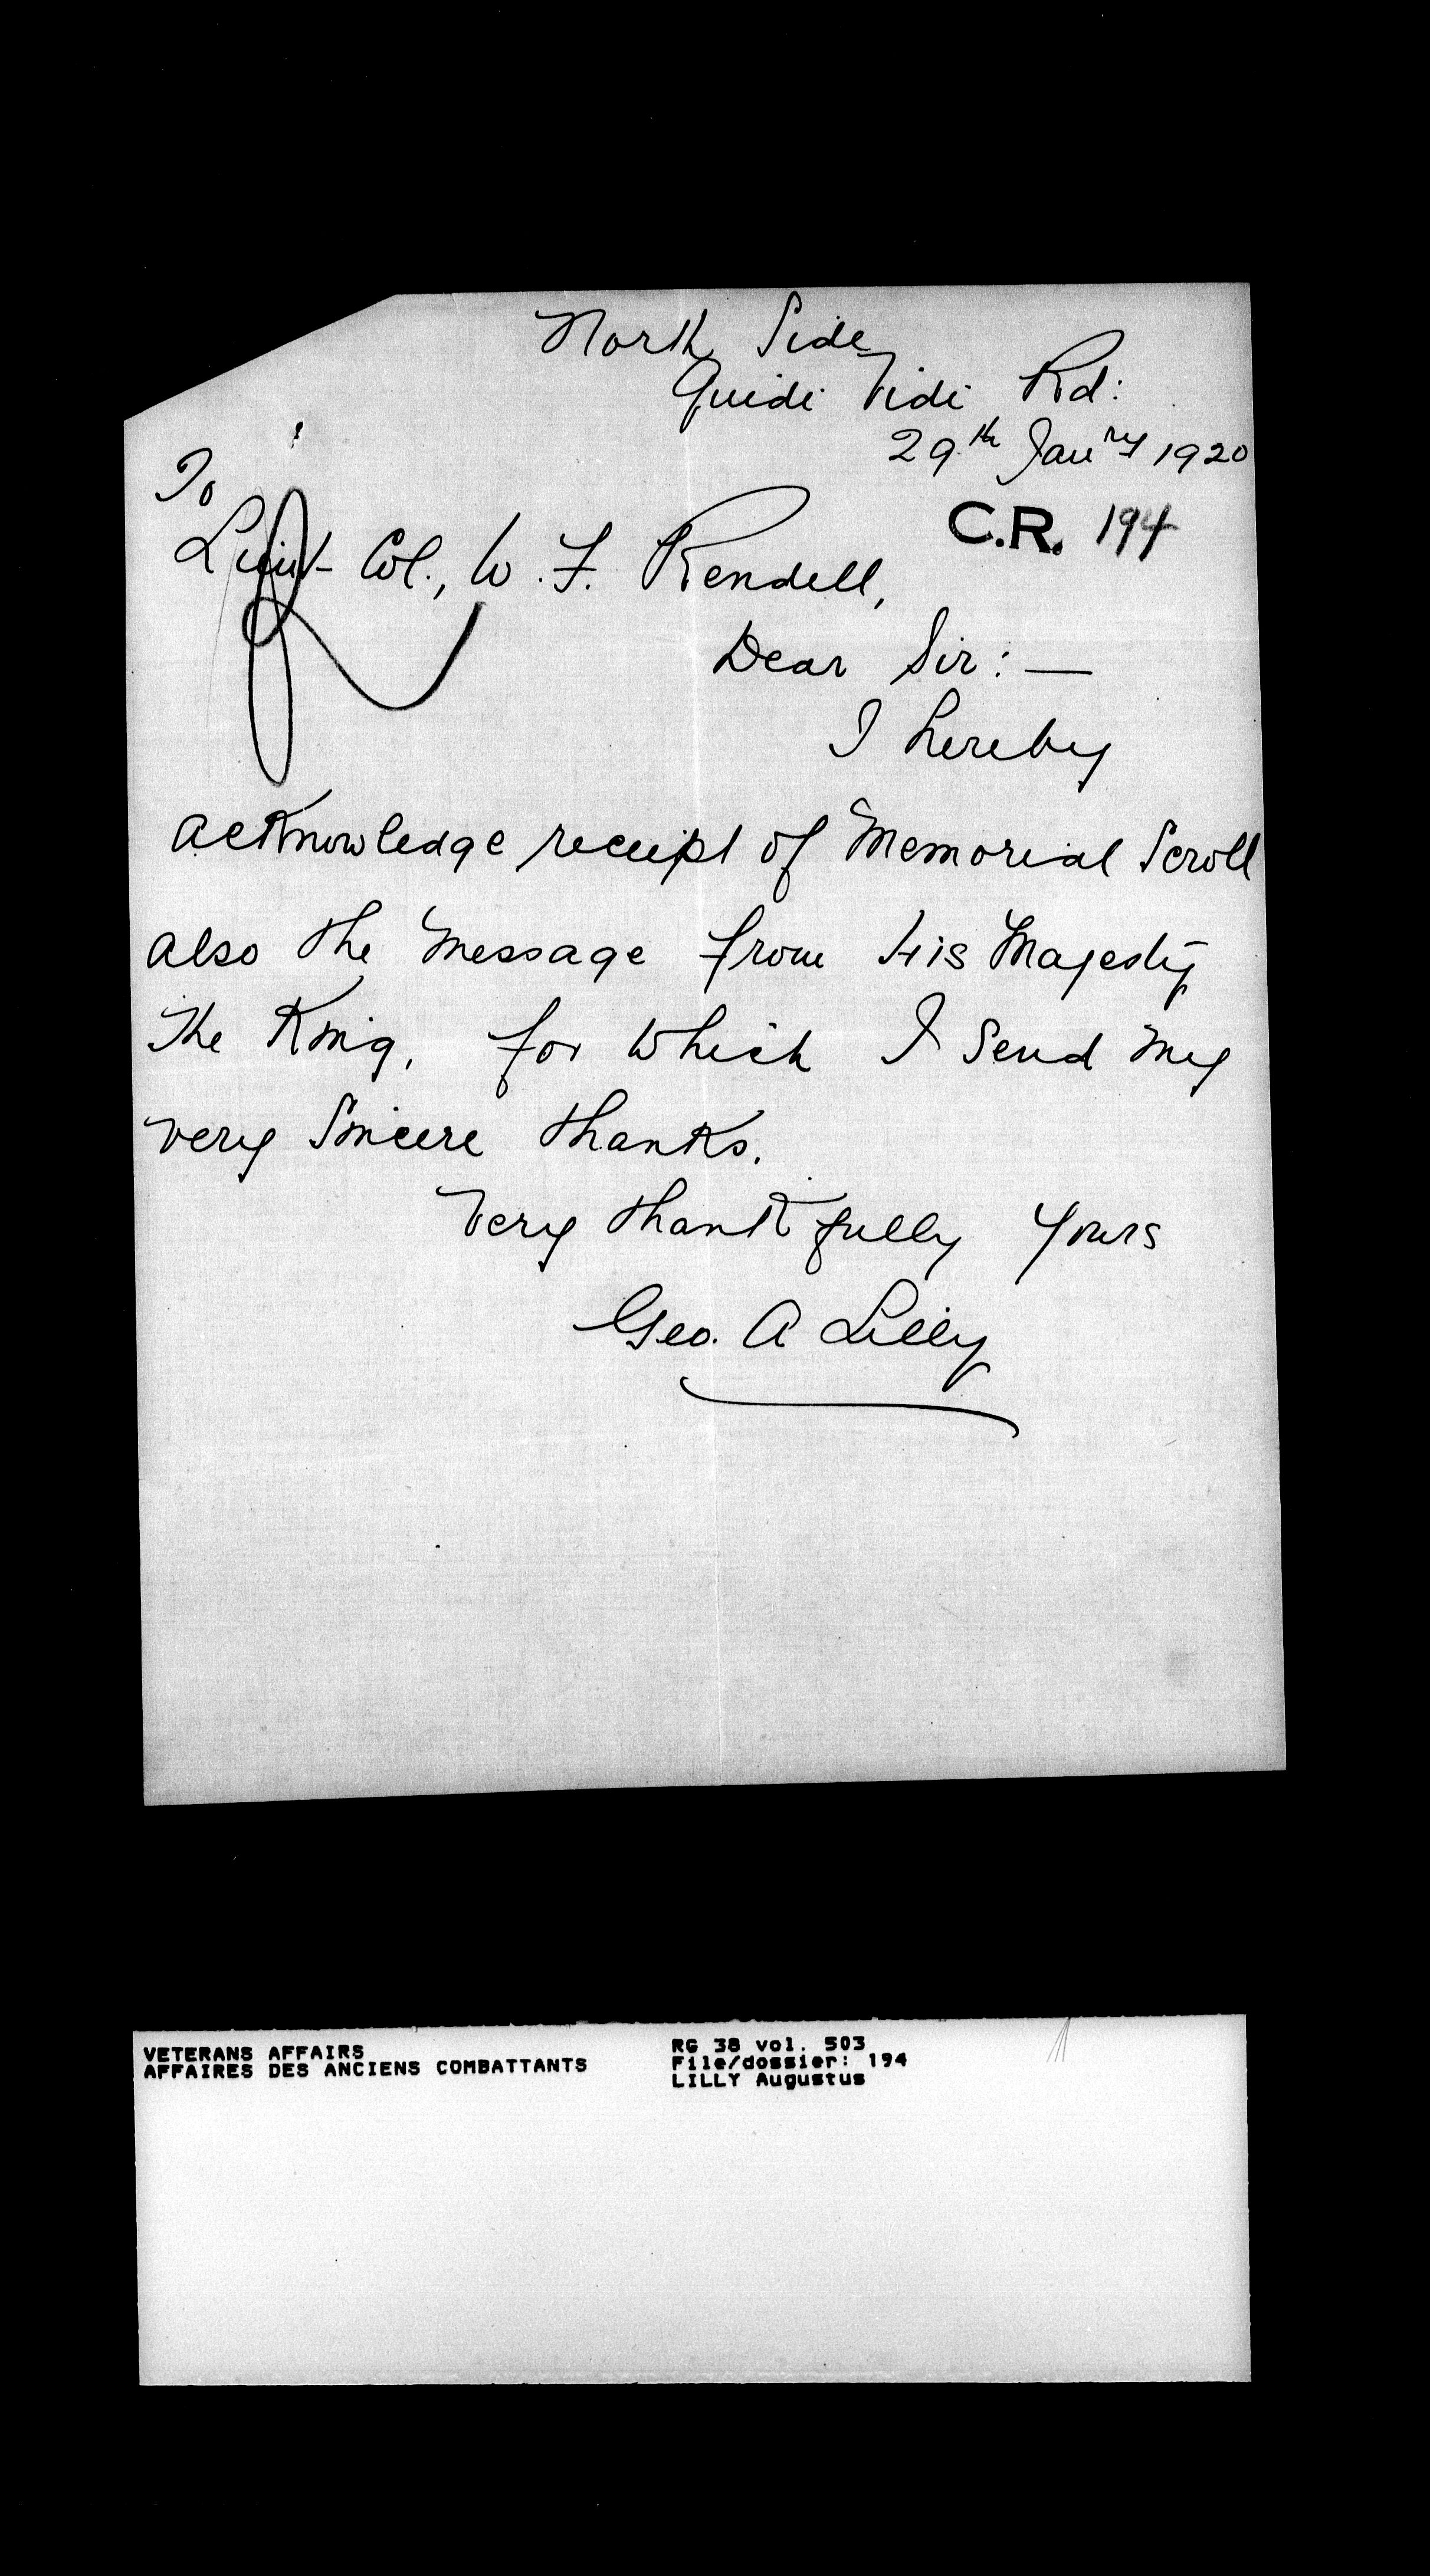 North Side
Quidi Vidi Rd:
29th Jan'ry 1920
To
C.R. 194
Lieut- Col., W. F. Rendell,
Dear Sir:—
I hereby
acknowledge receipt of Memorial Scroll
also the Message from His Majesty
the King, for which I send my
very Sincere thanks.
Very thankfully Yours
Geo. A Lilly
VETERANS AFFAIRS
AFFAIRES DES ANCIENS COMBATTANTS
RG 38 vol. 503
File/dossier: 194
LILLY Augustus